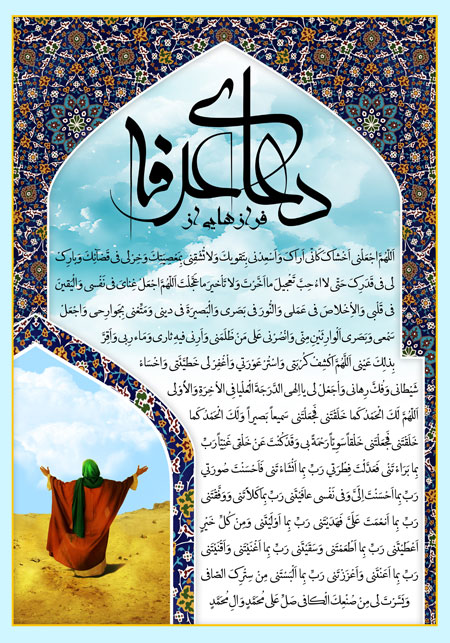 دعای عرفه
فرازهایی از
اَللّهُمَّ اجْعَلْنی اَخْشاکَ کَاَنّی اَراکَ وَاَسْعِدْنی بِتَقویکَ وَلا تُشْقِنی بِمَعْصِیَتِکَ وَخِرْلی فی قَضآئِکَ وَبارِکْ
لی فی قَدَرِکَ حَتّی لا اُحِبَّ تَعْجیلَ ما اَخَّرْتَ وَلا تَاْخیرَ ما عَجَّلْتَ اَللّهُمَّ اجْعَلْ غِنایَ فی نَفْسی وَالْیَقینَ
فی قَلْبی وَالاِْخْلاصَ فی عَمَلی وَالنُّورَ فی بَصَری وَالْبَصیرَةَ فی دینی وَمَتِّعْنی بِجَوارِحی وَاجْعَلْ
سَمْعی وَبَصَری اَلْوارِثَیْنِ مِنّی وَانْصُرْنی عَلی مَنْ ظَلَمَنی وَاَرِنی فیهِ ثاری وَمَاءرِبی وَاَقِرَّ
بِذلِکَ عَیْنی اَللَّهُمَّ اکْشِفْ کُرْبَتی وَاسْتُرْ عَوْرَتی وَاغْفِرْ لی خَطیَّئَتی وَاخْسَاءْ
شَیْطانی وَفُکَّ رِهانی وَاجْعَلْ لی یا اِلهی الدَّرَجَةَ الْعُلْیا فِی الاْخِرَةِ وَالاُْولی
اَللّهُمَّ لَکَ الْحَمْدُ کَما خَلَقْتَنی فَجَعَلْتَنی سَمیعاً بَصیراً وَلَکَ الْحَمْدُ کَما
خَلَقْتَنی فَجَعَلْتَنی خَلْقاً سَوِیّاً رَحْمَةً بی وَقَدْ کُنْتَ عَنْ خَلْقی غَنِیّاً رَبِّ
بِما بَرَاءْتَنی فَعَدَّلْتَ فِطْرَتی رَبِّ بِما اَنْشَاءْتَنی فَاَحْسَنْتَ صُورَتی
رَبِّ بِما اَحْسَنْتَ اِلَیَّ وَفی نَفْسی عافَیْتَنی رَبِّ بِما کَلاَتَنی وَوَفَّقْتَنی
رَبِّ بِما اَنْعَمْتَ عَلَیَّ فَهَدَیْتَنی رَبِّ بِما اَوْلَیْتَنی وَمِنْ کُلِّ خَیْرٍ
اَعْطَیْتَنی رَبِّ بِما اَطْعَمْتَنی وَسَقَیْتَنی رَبِّ بِما اَغْنَیْتَنی وَاَقْنَیْتَنی
رَبِّ بِما اَعَنْتَنی وَاَعْزَزْتَنی رَبِّ بِما اَلْبَسْتَنی مِنْ سِتْرِکَ الصّافی
وَیَسَّرْتَ لی مِنْ صُنْعِکَ الْکافی صَلِّ عَلی مُحَمَّدٍ وَآلِ مُحَمَّدٍ